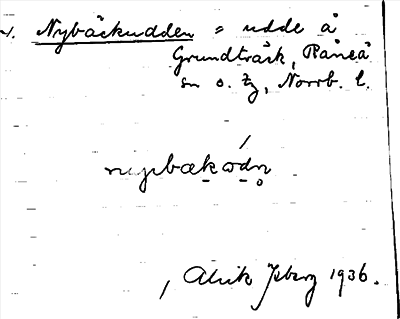 Nybäckudden = udde å
Grundträsk, Råneå
sn o. tg, Norrb. l.
nypbækodn
Alrik Isberg 1936.